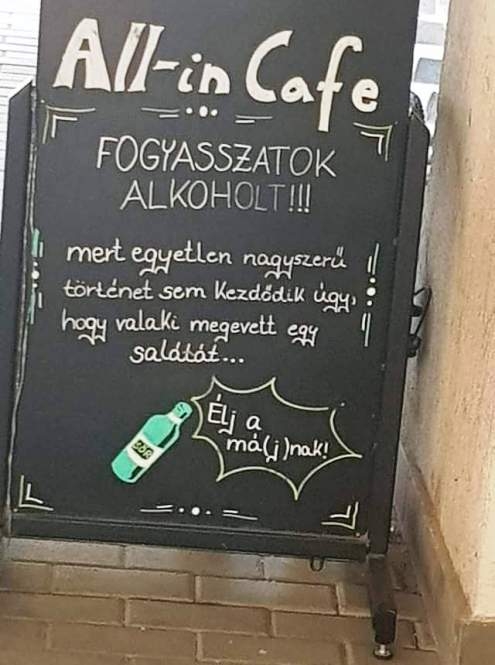 All-in Cafe
FOGYASSZATOK
ALKOHOLT!!!
mert egyetlen nagyszerű
történet sem kezdődik úgy,
hogy valaki megevett egy
salátát...
Élj a
má(j)nak!